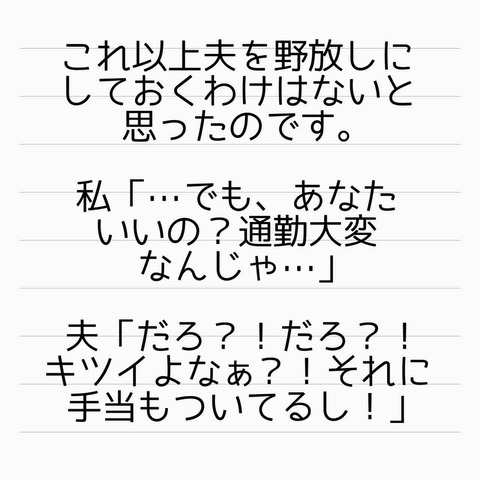 これ以上夫を野放しに
しておくわけはないと
思ったのです。
私「…でも、あなた
いいの？通勤大変
なんじゃ…」
夫「だろ？！だろ？！
キツイよなぁ？！それに
手当もついてるし！」